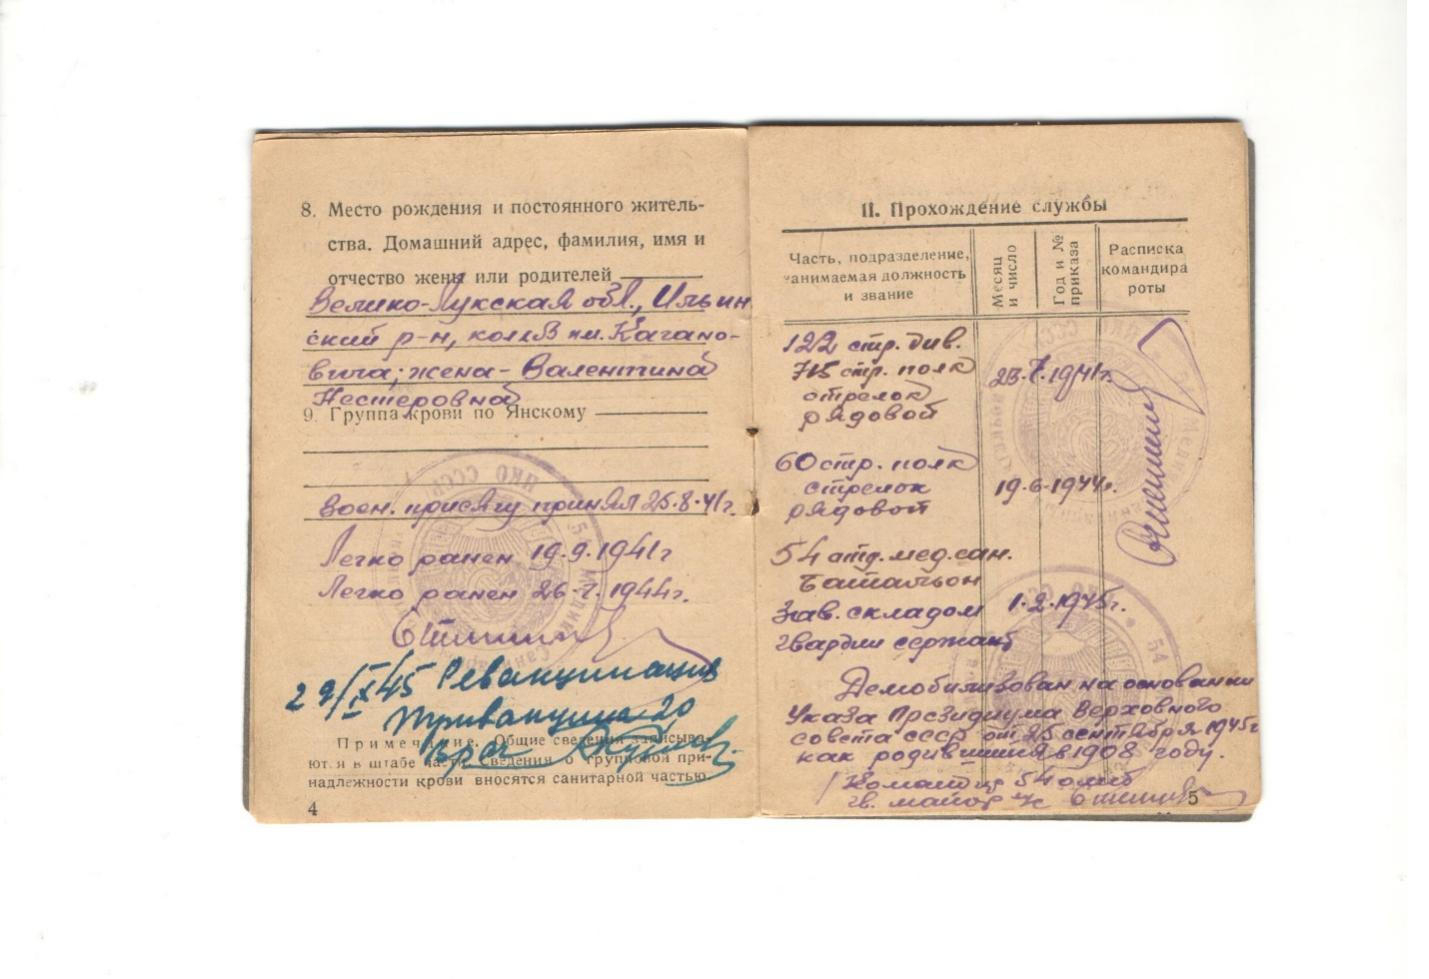 8. Место рождения и постоянного житель-
ства. Домашний адрес, фамилия, имя и
отчество жены или родителей
Велико-Лукская обл., Ильин
ский р-н, колхоз им. Кагано-
вича; жена - Валентина
Нестеровна
9. Группа крови по Янскому
Воен. присягу принял 25.8.41г.
Легко ранен 19.9.1941г
Легко ранен 26.7.1944г.
29/IX 45 Ревакцинация
тривакцина 2,0
Врач
Примечание. Общие сведения записыва-
ются в штабе части. Сведения о групповой при-
надлежности крови вносятся санитарной частью
4
II. Прохождение службы
Часть, подразделение, занимаемая должность и звание
Месяц и число
Год и № приказа
Расписка командира роты
122 стр. див.
715 стр. полк 23.7.1941г.
стрелок
рядовой
60 стр. полк
стрелок 19.6.1944г.
рядовой
54 отд. мед. сан.
батальон
Зав. складом 1.2.1945г.
гвардии сержант
Демобилизован на основании
Указа Президиума Верховного
совета СССР от 25 сентября 1945г
как родившийся в 1908 году.
Командир 54 омсб
гв. майор м/с
5